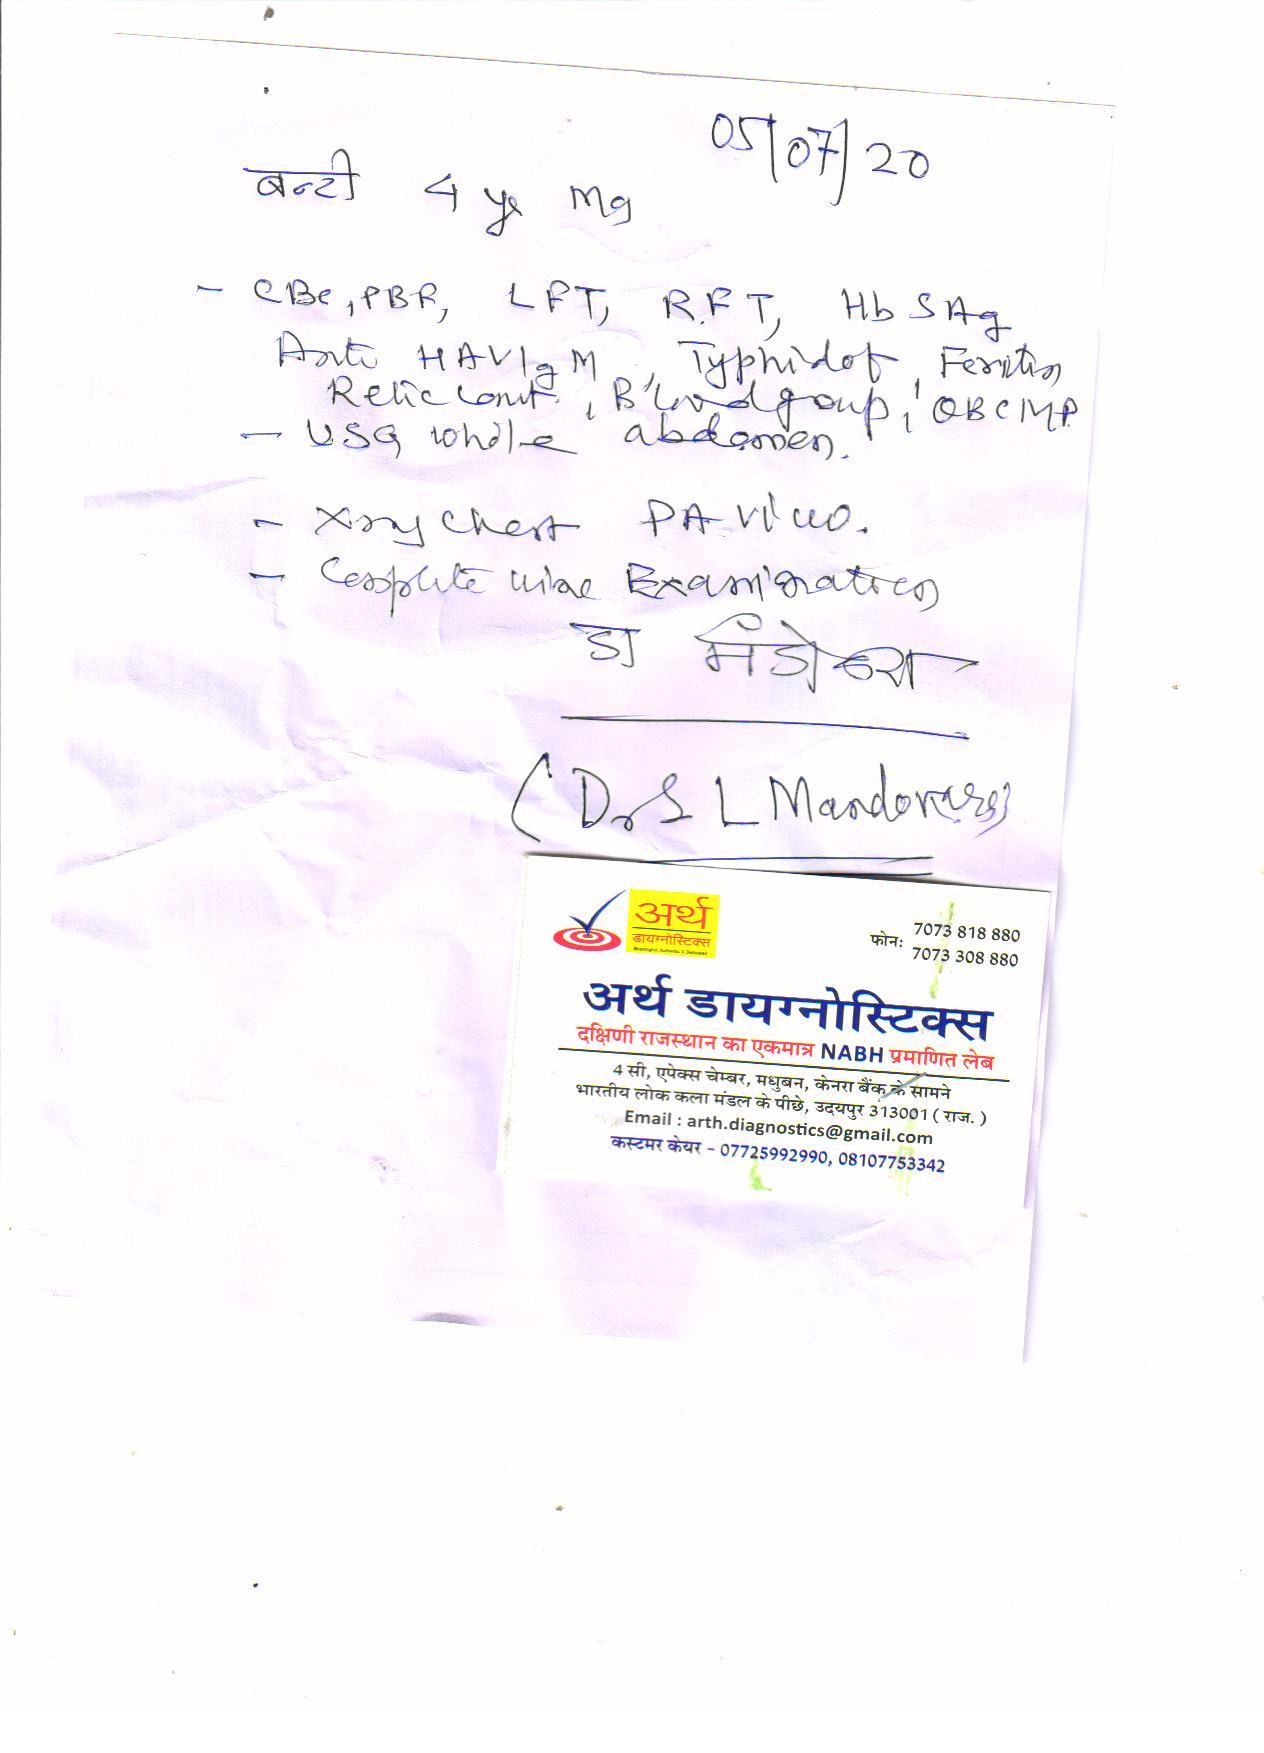 05/07/20
बन्टी 4 yr
- CBC, PBF, LFT, RFT, HbSAg
Anti HAV IgM, Typhidot, Ferritin
Retic Count, B'lood group, QBC MP
- USG whole abdomen.
- Xray Chest PA View.
- Complete urine Examination
डा मंडोवरा
(Dr S L Mandovara)
अर्थ
डायग्नोस्टिक्स
Meaningful, Authentic & Dedicated
फोन: 7073 818 880
7073 308 880
अर्थ डायग्नोस्टिक्स
दक्षिणी राजस्थान का एकमात्र NABH प्रमाणित लेब
4 सी, एपेक्स चेम्बर, मधुबन, केनरा बैंक के सामने
भारतीय लोक कला मंडल के पीछे, उदयपुर 313001 ( राज. )
Email : arth.diagnostics@gmail.com
कस्टमर केयर – 07725992990, 08107753342